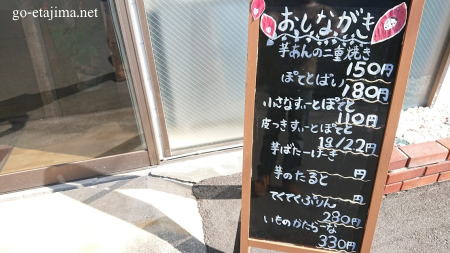 go-etajima.net
おしながき
芋あんの二重焼き
150円
ぽてとぱい
180円
小さなすいーとぽてと
110円
皮つきすいーとぽてと
1g/2.2円
芋ばたーけーき
芋のたると
円
てくてくぷりん
円
280円
いものかたらーな
330円